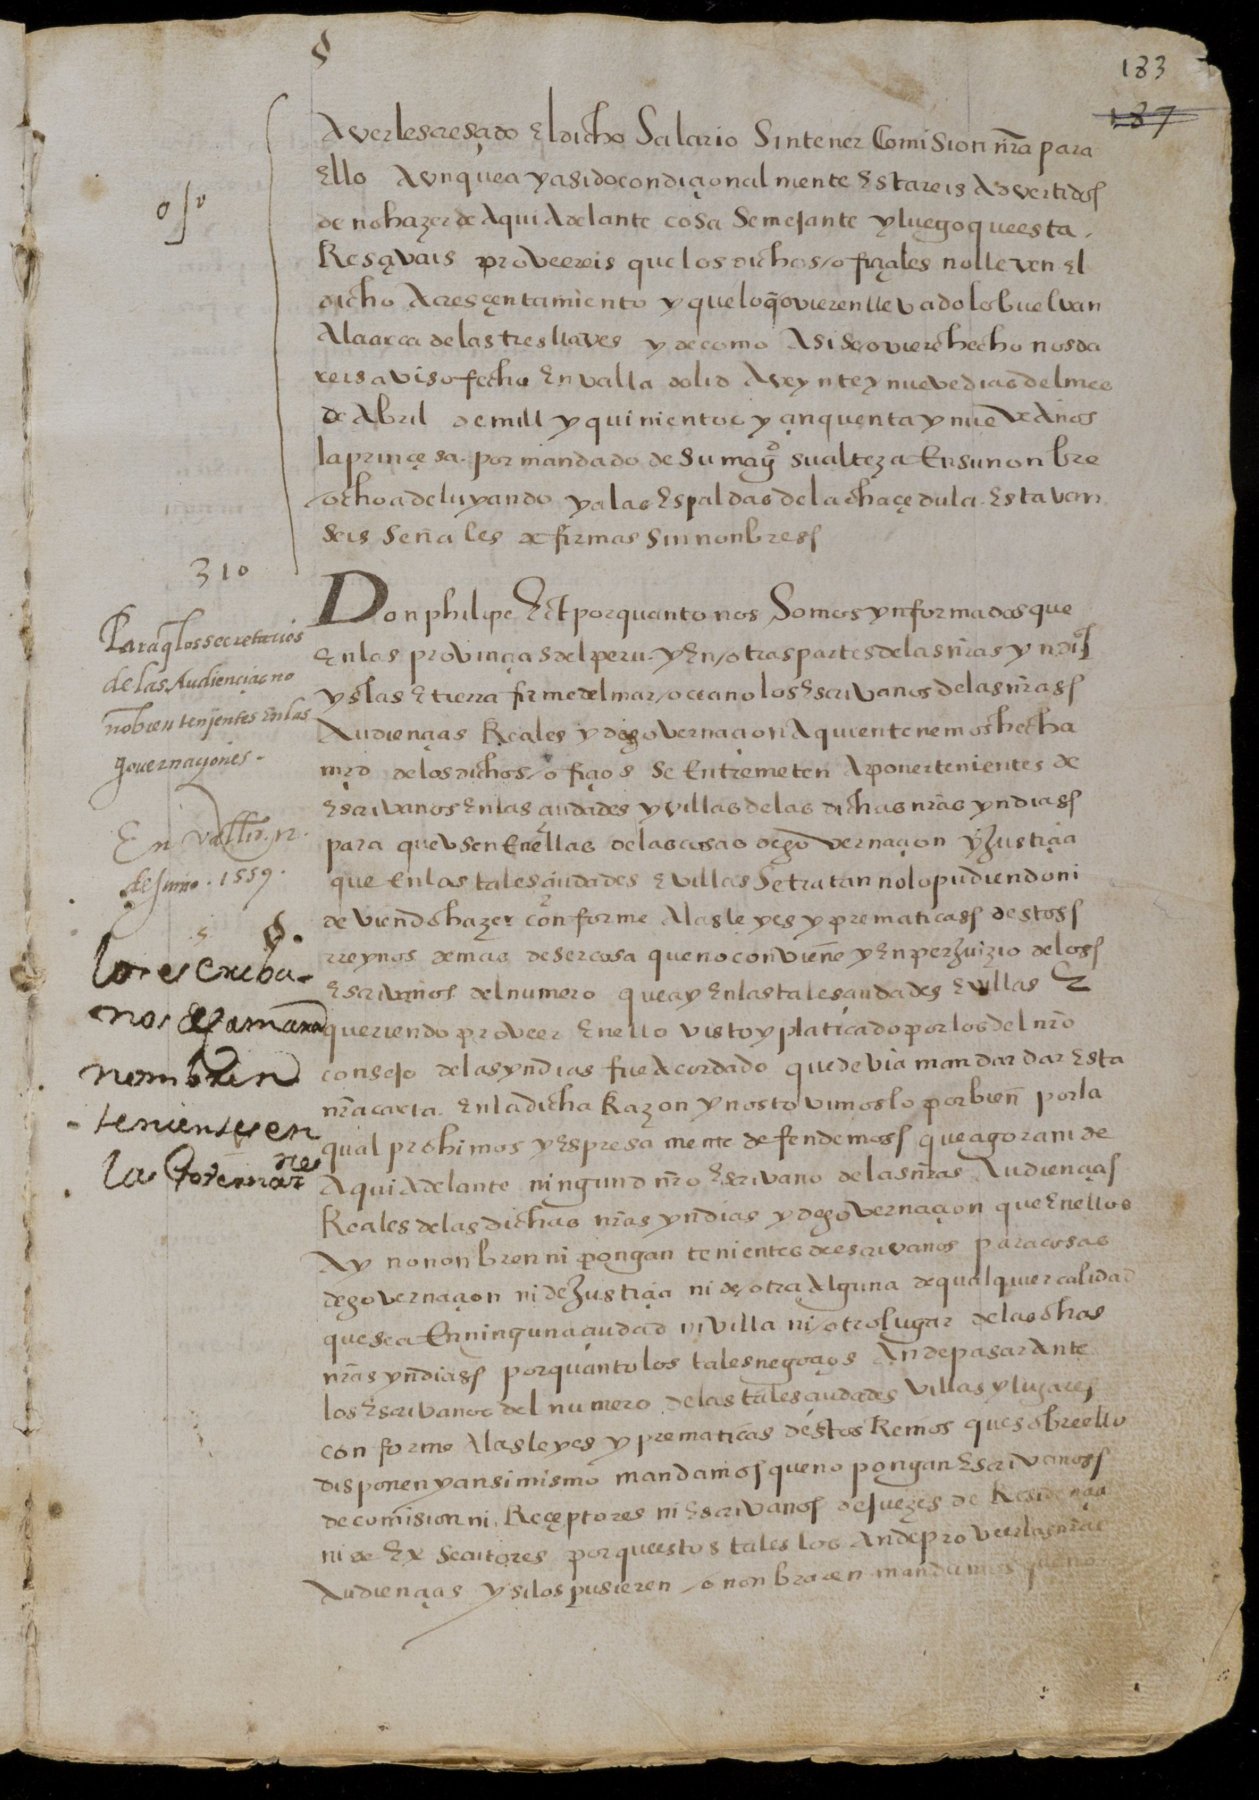 183
187
Averles cresçido El dicho Salario Sin tener Comision nr̄a para
Ello Avnque aya sido condiçionalmente Estareis Advertidos
de no hazer de Aqui Adelante cosa Semejante y luego que esta
Resçivais proveereis que los dichos ofiçiales no lleven El
dicho Acresçentamiento y que lo q̄ ovieren llevado lo buelvan
A la arca de las tres llaves y de como Asi se oviere hecho nos da
reis aviso fecha En valladolid A veynte y nueve dias del mes
de Abril de mill y quinientos y çinquenta y nueve Años
la prinçesa. por mandado de Su mag.d su alteza En su nonbre
ochoa de luyando y a las Espaldas de la dha çedula. Estavan
Seis Señales de firmas Sin nonbres
310
Para q̄ los secretarios
de las Audiençias no
nobren tenientes En las
governaçiones.
En Vall
de Junio. 1559.
los escriba-
nos de camara
nombren
tenientes en
la Governaz
nes
Don philipe Ect porquanto nos Somos ynformados que
En las provinçias del peru. y En otras partes de las nr̄as yndi
yslas E tierra firme del mar oceano los Escrivanos de las nr̄as
Audiençias Reales y de governaçion A quien tenemos hecha
mrd de los dichos ofiçios Se Entremeten A poner tenientes de
Escrivanos En las çiudades y villas de las dichas nr̄as yndias
para que vsen En ellas de las cosas de governaçion y Justiçia
que En las tales çiudades E villas Se tratan no lo pudiendo ni
deviendo hazer conforme A las leyes y prematicas destos
rreynos demas de ser cosa que no conviene y En perJuizio de los
Escrivanos del numero que ay En las tales çiudades E villas E
queriendo proveer En ello visto y platicado por los del nr̄o
consejo de las yndias fue Acordado que devia mandar dar Esta
nr̄a carta. En la dicha Razon y nos tovimoslo por bien por la
qual prohimos y Espresamente defendemos que agora ni de
Aqui Adelante ningund nr̄o Escrivano de las nr̄as Audiençias
Reales de las dichas nr̄as yndias y de governaçion que En ellos
Ay no nonbren ni pongan tenientes de escrivanos para cosas
de governaçion ni de Justiçia ni de otra Alguna de qualquier calidad
que sea En ninguna çiudad ni villa ni otro lugar de las dhas
nr̄as yndias porquanto los tales negoçios An de pasar Ante
los Escrivanos del numero de las tales çiudades villas y lugares
conforme A las leyes y prematicas destos Reinos que sobre ello
disponen y ansimismo mandamos que no pongan Escrivanos
de comision ni Reçeptores ni Escrivanos de juezes de Residençia
ni de Exsecutores porque estos tales los An de proveer las nr̄as
Audiençias y si los pusieren o nonbraren mandamos que no